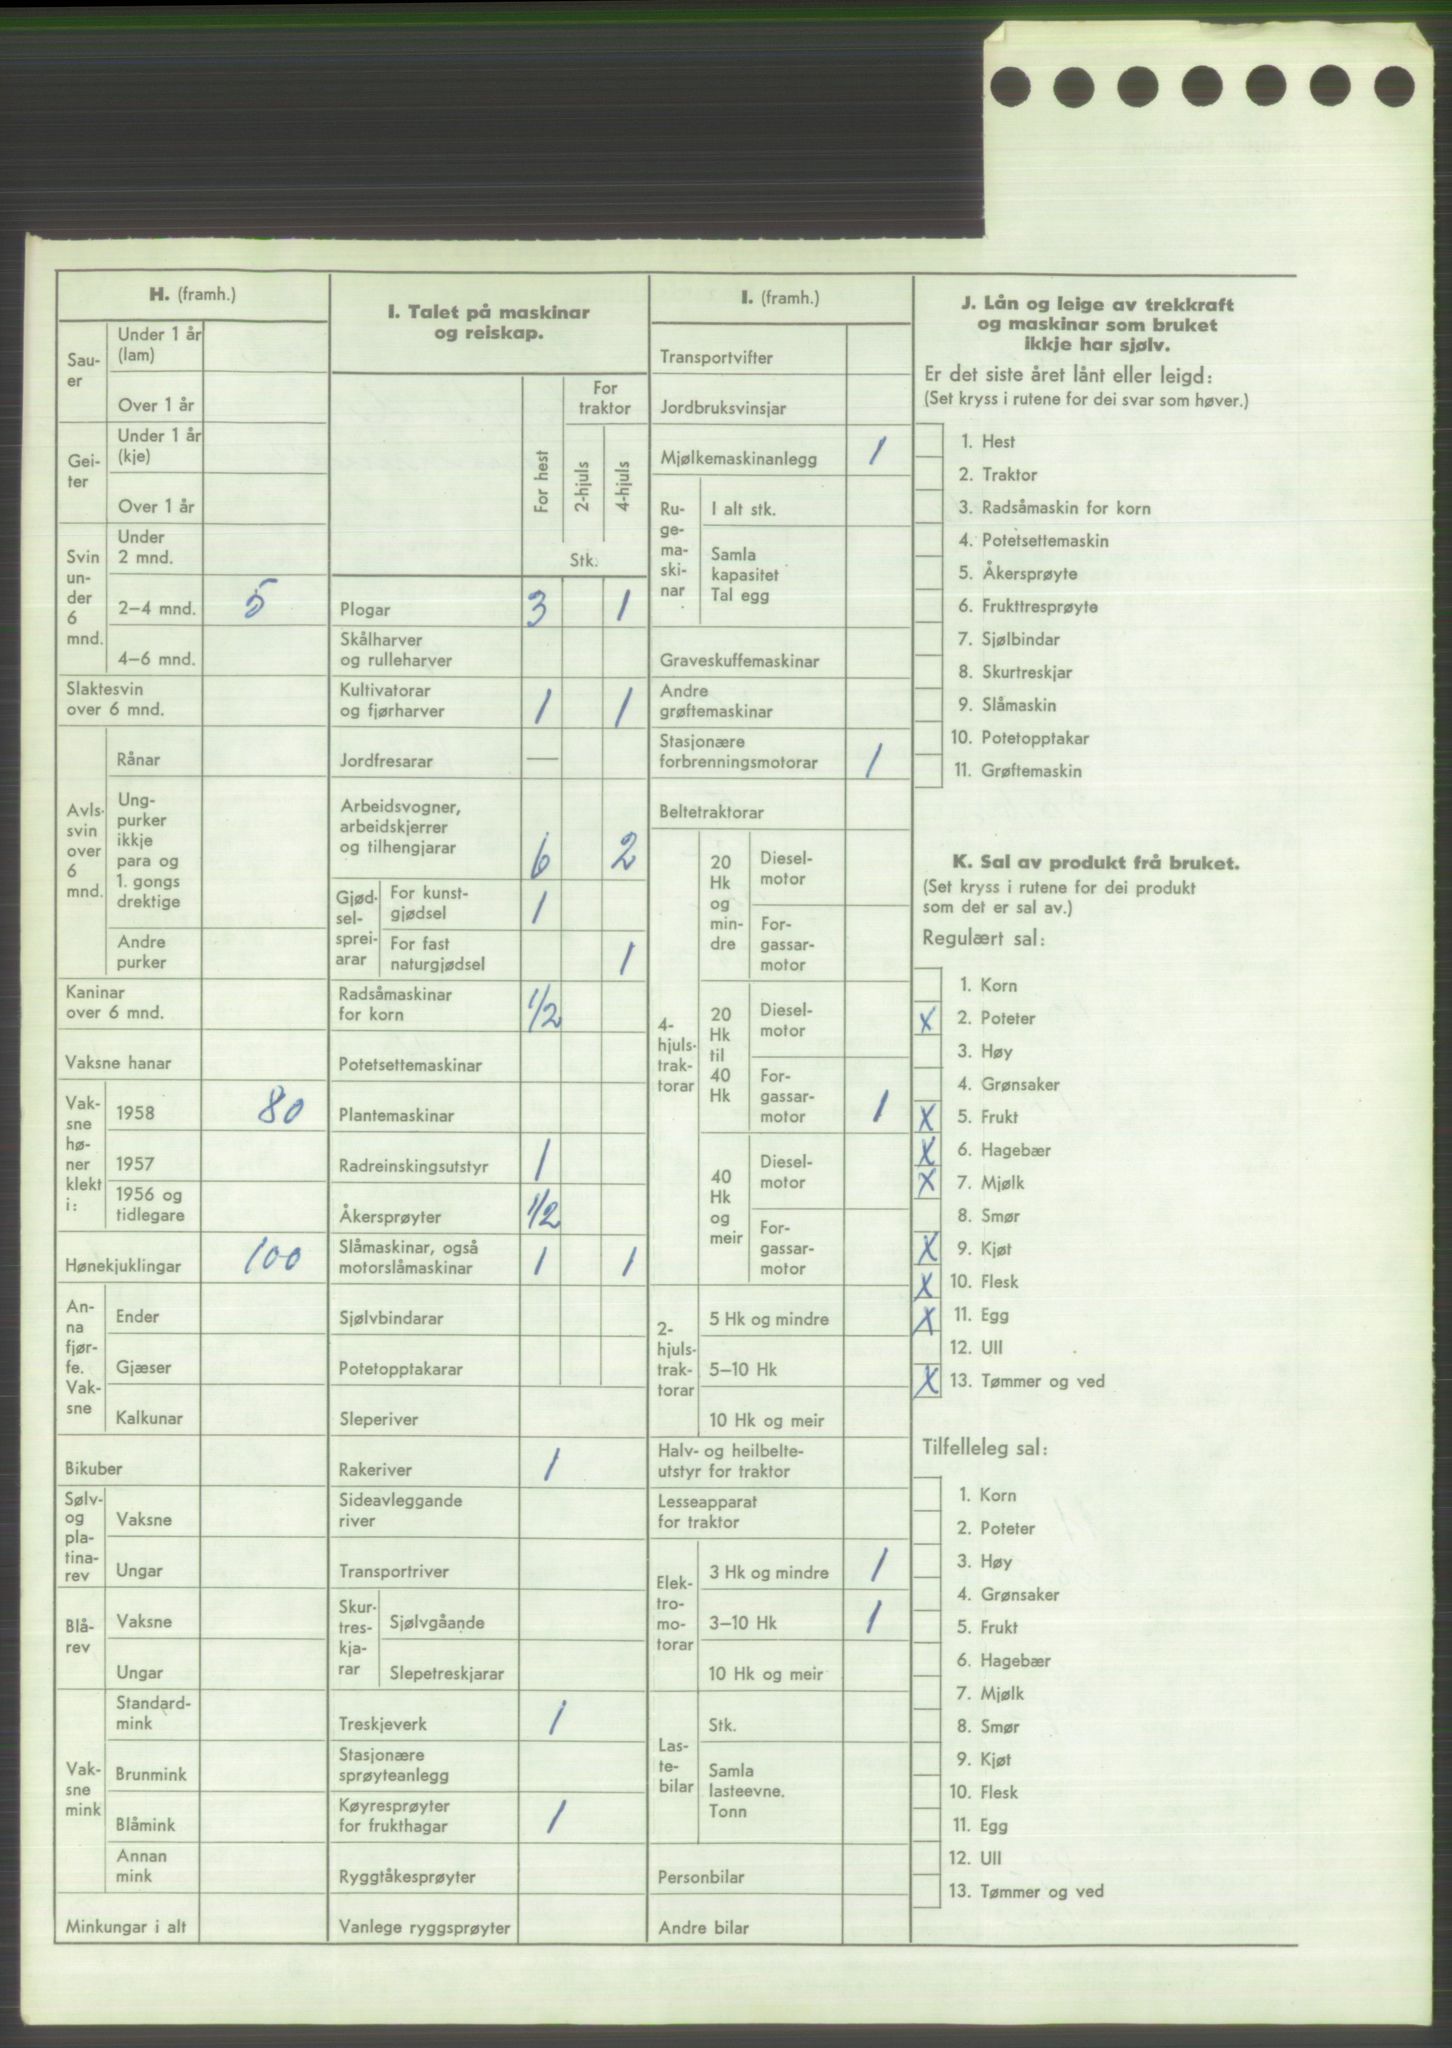 H. (framh.)
Sau-
er
Under 1 år
(lam)
Over 1 år
Gei-
ter
Under 1 år
(kje)
Over 1 år
Svin
un-
der
6
mnd.
Under
2 mnd.
2–4 mnd. 5
4–6 mnd.
Slaktesvin
over 6 mnd.
Avls-
svin
over
6
mnd.
Rånar
Ung-
purker
ikkje
para og
1. gongs
drektige
Andre
purker
Kaninar
over 6 mnd.
Vaksne hanar
Vak-
sne
hø-
ner
klekt
i:
1958 80
1957
1956 og
tidlegare
Hønekjuklingar 100
An-
na
fjør-
fe.
Vak-
sne
Ender
Gjæser
Kalkunar
Bikuber
Sølv-
og
pla-
tina-
rev
Vaksne
Ungar
Blå-
rev
Vaksne
Ungar
Vak-
sne
mink
Standard-
mink
Brunmink
Blåmink
Annan
mink
Minkungar i alt
I. Talet på maskinar
og reiskap.
For hest
For
traktor
2-hjuls
4-hjuls
Stk.
Plogar 3 1
Skålharver
og rulleharver
Kultivatorar
og fjørharver 1 1
Jordfresarar —
Arbeidsvogner,
arbeidskjerrer
og tilhengjarar 6 2
Gjød-
sel-
sprei-
arar
For kunst-
gjødsel 1
For fast
naturgjødsel 1
Radsåmaskinar
for korn 1/2
Potetsettemaskinar
Plantemaskinar
Radreinskingsutstyr 1
Åkersprøyter 1/2
Slåmaskinar, også
motorslåmaskinar 1 1
Sjølvbindarar
Potetopptakarar
Sleperiver
Rakeriver 1
Sideavleggande
river
Transportriver
Skur-
tres-
kja-
rar
Sjølvgåande
Slepetreskjarar
Treskjeverk 1
Stasjonære
sprøyteanlegg
Køyresprøyter
for frukthagar 1
Ryggtåkesprøyter
Vanlege ryggsprøyter
I. (framh.)
Transportvifter
Jordbruksvinsjar
Mjølkemaskinanlegg 1
Ru-
ge-
ma-
ski-
nar
I alt stk.
Samla
kapasitet
Tal egg
Graveskuffemaskinar
Andre
grøftemaskinar
Stasjonære
forbrenningsmotorar 1
Beltetraktorar
4-
hjuls-
trak-
torar
20
Hk
og
min-
dre
Diesel-
motor
For-
gassar-
motor
20
Hk
til
40
Hk
Diesel-
motor
For-
gassar-
motor 1
40
Hk
og
meir
Diesel-
motor
For-
gassar-
motor
2-
hjuls-
trak-
torar
5 Hk og mindre
5–10 Hk
10 Hk og meir
Halv- og heilbelte-
utstyr for traktor
Lesseapparat
for traktor
Elek-
tro-
mo-
torar
3 Hk og mindre 1
3–10 Hk 1
10 Hk og meir
Las-
te-
bilar
Stk.
Samla
lasteevne.
Tonn
Personbilar
Andre bilar
J. Lån og leige av trekkraft
og maskinar som bruket
ikkje har sjølv.
Er det siste året lånt eller leigd:
(Set kryss i rutene for dei svar som høver.)
1. Hest
2. Traktor
3. Radsåmaskin for korn
4. Potetsettemaskin
5. Åkersprøyte
6. Frukttresprøyte
7. Sjølbindar
8. Skurtreskjar
9. Slåmaskin
10. Potetopptakar
11. Grøftemaskin
K. Sal av produkt frå bruket.
(Set kryss i rutene for dei produkt
som det er sal av.)
Regulært sal:
1. Korn
X 2. Poteter
3. Høy
4. Grønsaker
X 5. Frukt
X 6. Hagebær
X 7. Mjølk
8. Smør
X 9. Kjøt
X 10. Flesk
X 11. Egg
12. Ull
X 13. Tømmer og ved
Tilfelleleg sal:
1. Korn
2. Poteter
3. Høy
4. Grønsaker
5. Frukt
6. Hagebær
7. Mjølk
8. Smør
9. Kjøt
10. Flesk
11. Egg
12. Ull
13. Tømmer og ved